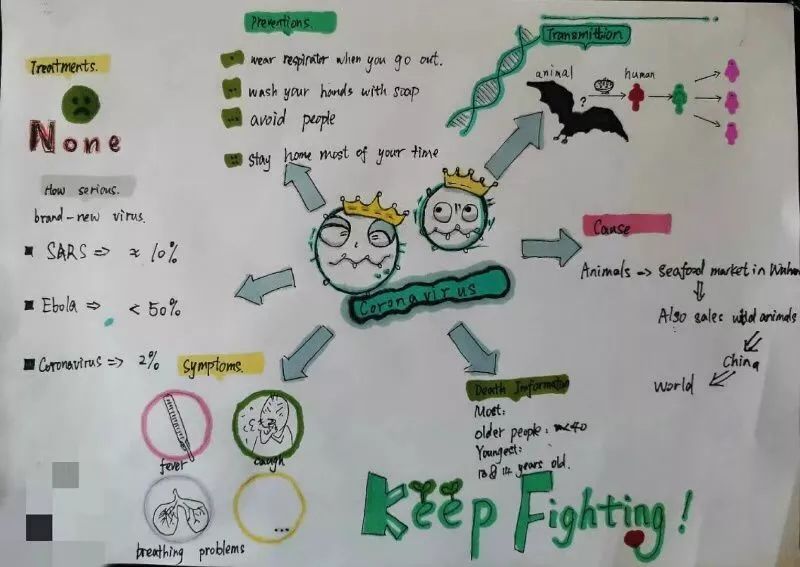 Preventions.
wear respirator when you go out.
wash your hands with soap
avoid people
stay home most of your time
Transmittion
animal
human
?
Treatments.
None
How serious.
brand-new virus.
SARS => ≈ 10%
Ebola => < 50%
Coronavirus => 2%
Coronavirus
Cause
Animals -> Seafood market in Wuhan
Also sale: wild animals
China
World
Symptoms.
fever
cough
breathing problems
...
Death Information
Most:
older people:
Youngest:
years old.
Keep Fighting!